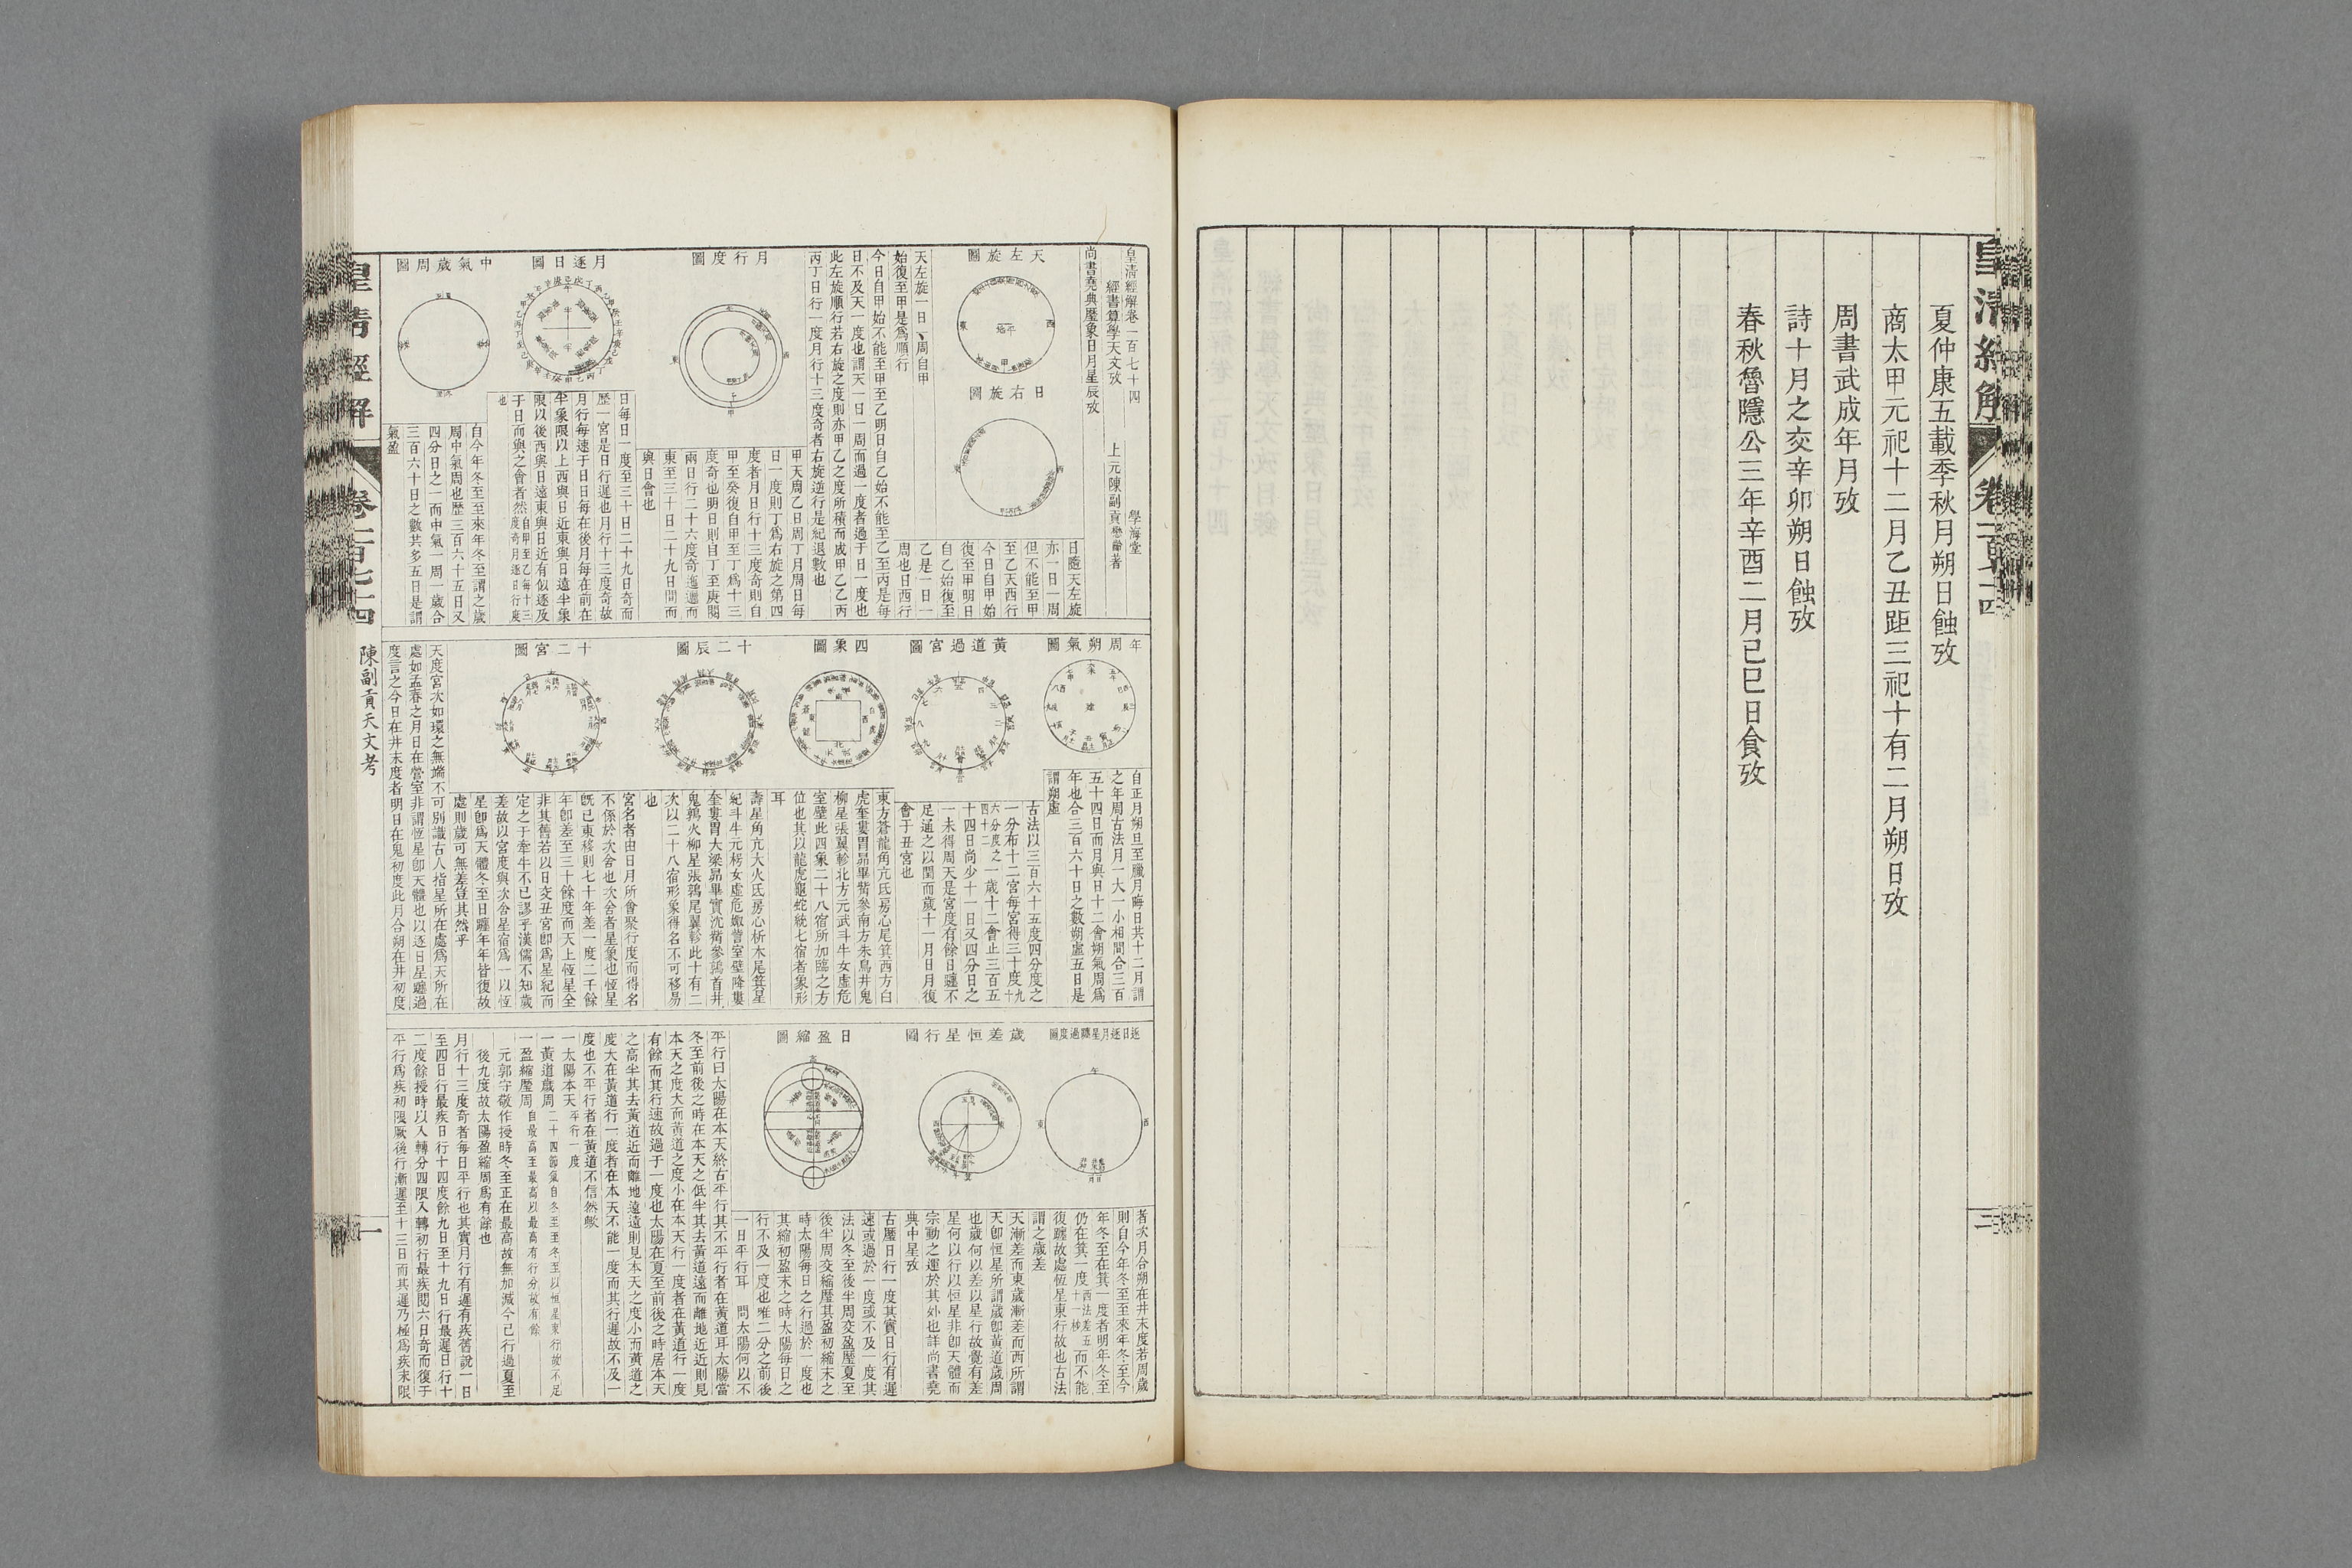 皇清經解
卷一百七十四
夏仲康五載季秋月朔日蝕攷
商太甲元祀十二月乙丑距三祀十有二月朔日攷
周書武成年月攷
詩十月之交辛卯朔日蝕攷
春秋魯隱公三年辛酉二月己巳日食攷
二
皇清經解卷一百七十四
學海堂
經書算學天文攷
上元陳副貢懋齡著
尚書堯典曆象日月星辰攷
天左旋圖
日右旋圖
日隨天左旋
亦一日一周
但不能至甲
至乙天西行
今日自甲始
復至甲明日
自乙始復至
乙是一日一
周也日西行
天左旋一日一周自甲
始復至甲是爲順行
今日自甲始不能至甲至乙明日自乙始不能至乙至丙是每
日不及天一度也謂天一日一周而過一度者過于日一度也
此左旋順行若右旋之度則亦甲乙之度所積而成甲乙乙丙
丙丁日行一度月行十三度奇者右旋逆行是紀退數也
月行度圖
甲天周乙日周丁月周日每
日一度則丁爲右旋之第四
度者月日行十三度奇則自
甲至癸復自甲至丁爲十三
度奇也明日則自丁至庚閱
兩日行二十六度奇迤邐而
東至三十日二十九日間而
與日會也
月逐日圖
日每日一度至三十日二十九日奇而
歷一宮是日行遲也月行十三度奇故
月行每速于日日每在後月每在前在
半象限以上西與日近東與日遠半象
限以後西與日遠東與日近有似逐及
于日而與之會者然自甲至乙每十三度奇月逐日行度
也
中氣歲周圖
自今年冬至至來年冬至謂之歲
周中氣周也歷三百六十五日又
四分日之一而中氣一周一歲合
三百六十日之數共多五日是謂
氣盈
年周朔氣圖
自正月朔旦至臘月晦日共十二月謂
之年周古法月一大一小相間合三百
五十四日而月與日十二會朔氣周爲
年也合三百六十日之數朔虛五日是
謂朔虛
黃道過宮圖
古法以三百六十五度四分度之
一分布十二宮每宮得三十度九十
六分度之四十二一歲十二會止三百五
十四日尚少十一日又四分日之
一未得周天是宮度有餘日躔不
足通之以閏而歲十一月日月復
會于丑宮也
四象圖
東方蒼龍角亢氐房心尾箕西方白
虎奎婁胃昴畢觜參南方朱鳥井鬼
柳星張翼軫北方元武斗牛女虛危
室壁此四象二十八宿所加臨之方
位也其以龍虎龜蛇統七宿者象形
耳
十二辰圖
壽星角亢大火氐房心析木尾箕星
紀斗牛元枵女虛危娵訾室壁降婁
奎婁胃大梁昴畢實沈觜參鶉首井
鬼鶉火柳星張鶉尾翼軫此十有二
次以二十八宿形象得名不可移易
也
十二宮圖
宮名者由日月所會聚行度而得名
不係於次舍也次舍者星象也恆星
旣已東移則七十年差一度二千餘
年卽差至三十餘度而天上恆星全
非其舊若以日交丑宮卽爲星紀而
定之于牽牛不已謬乎漢儒不知歲
差故以宮度與次舍星宿爲一以恆
星卽爲天體冬至日躔年年皆復故
處則歲可無差豈其然乎
天度宮次如環之無端不可別識古人指星所在處爲天所在
處如孟春之月日在營室非謂恆星卽天體也以逐日星躔過
度言之今日在井末度者明日在鬼初度此月合朔在井初度
逐日逐月星躔過度圖
者次月合朔在井末度若周歲
則自今年冬至至來年冬至今
年冬至在箕一度者明年冬至
仍在箕一度西法差五十一秒而不能
復躔故處恆星東行故也古法
謂之歲差
歲差恒星行圖
天漸差而東歲漸差而西所謂
天卽恒星所謂歲卽黃道歲周
也歲何以差以星行故覺有差
星何以行以恒星非卽天體而
宗動之運於其外也詳尚書堯
典中星攷
日盈縮圖
古曆日行一度其實日行有遲
速或過於一度或不及一度其
法以冬至後半周交盈曆夏至
後半周交縮曆其盈初縮末之
時太陽每日之行過於一度也
其縮初盈末之時太陽每日之
行不及一度也唯二分之前後
一日平行耳　問太陽何以不
平行曰太陽在本天終古平行其不平行者在黃道耳太陽當
冬至前後之時在本天之低半其去黃道遠而離地近近則見
本天之度大而黃道之度小在本天行一度者在黃道行一度
有餘而其行速故過于一度也太陽在夏至前後之時居本天
之高半其去黃道近而離地遠遠則見本天之度小而黃道之
度大在黃道行一度者在本天不能一度而其行遲故不及一
度也不平行者在黃道不信然歟
一太陽本天平行一度
一黃道歲周二十四節氣自冬至至冬至以恒星東行故不足
一盈縮曆周自最高至最高以最高有行分故有餘
元郭守敬作授時冬至正在最高故無加減今已行過夏至
後九度故太陽盈縮周爲有餘也
月行十三度奇者每日平行也其實月行有遲有疾舊說一日
至四日行最疾日行十四度餘九日至十九日行最遲日行十
二度餘授時以入轉分四限入轉初行最疾閱六日奇而復于
平行爲疾初限厥後行漸遲至十三日而其遲乃極爲疾末限
皇清經解
卷一百七十四
陳副貢天文考
一